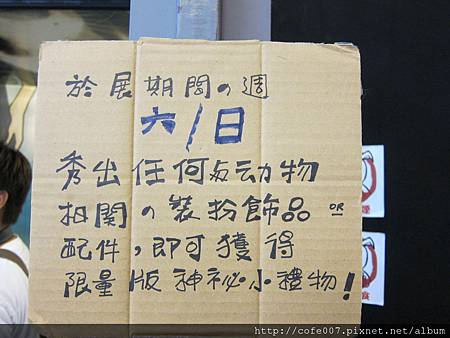 於展期間の週
六/日
秀出任何与动物
相關の裝扮飾品 or
配件，即可獲得
限量版神祕小禮物！
http://cofe007.pixnet.net/album